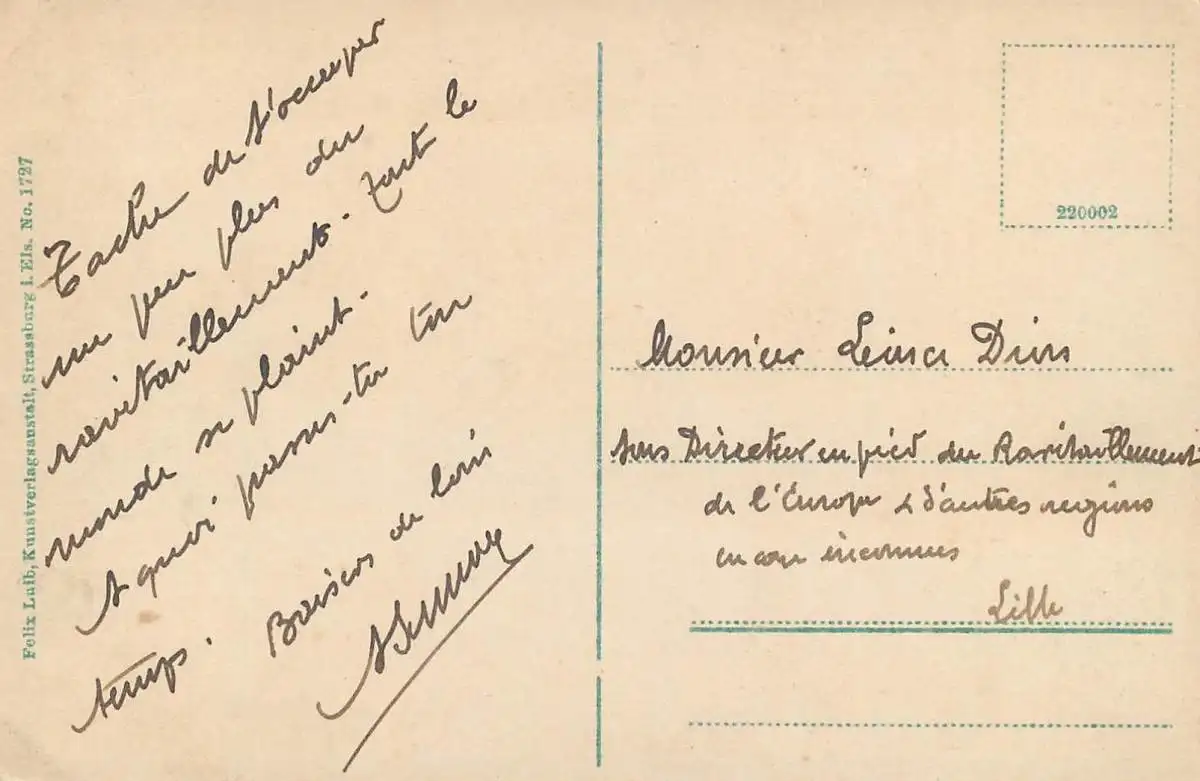 Felix Luib, Kunstverlagsanstalt, Strassburg i. Els. No. 1727
Tache de t'occuper
un peu plus du
ravitaillement. Tout le
monde se plaint.
A quoi passes-tu ton
temps. Baisers de loin
220002
Monsieur
Sous Directeur en pied du Ravitaillement
de l'Europe & d'autres regions
encore inconnues
Lille